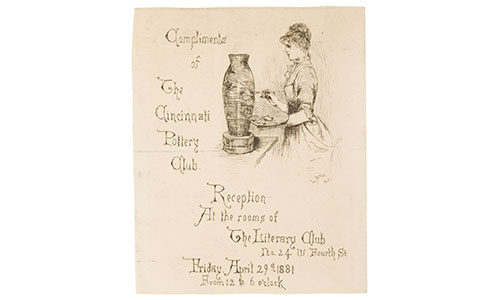 Compliments
of
The
Cincinnati
Pottery
Club.
Reception
At the rooms of
The Literary Club
No. 24 W Fourth St
Friday, April 29th 1881
From 12 to 6 o'clock